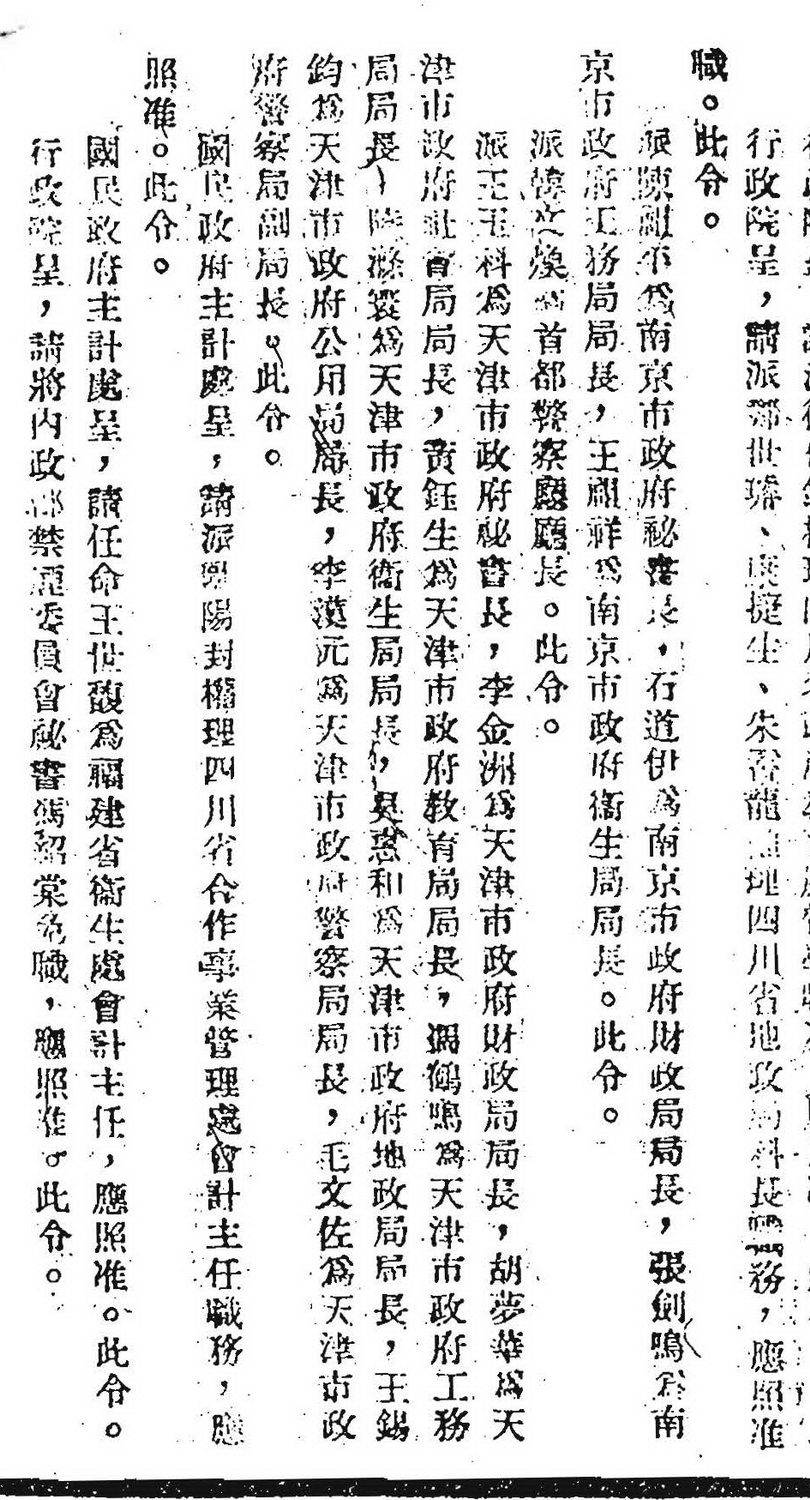 行政院呈，請派鄧世璿、康捷生、朱喬龍 理四川省地政局科長職務，應照准
職。此令。
派陳耀東爲南京市政府祕書長，石道伊爲南京市政府財政局局長，張劍鳴爲南
京市政府工務局局長，王祖祥爲南京市政府衞生局局長。此令。
派韓文煥爲首都警察廳廳長。此令。
派王玉科爲天津市政府祕書長，李金洲爲天津市政府財政局局長，胡夢華爲天
津市政府社會局局長，黃鈺生爲天津市政府教育局局長，楊鶴鳴爲天津市政府工務
局局長，陸滌寰爲天津市政府衞生局局長，吳惠和爲天津市政府地政局局長，王錫
鈞爲天津市政府公用局局長，李漢元爲天津市政府警察局局長，毛文佐爲天津市政
府警察局副局長。此令。
國民政府主計處呈，請派 陽封權理四川省合作事業管理處會計主任職務，應
照准。此令。
國民政府主計處呈，請任命王世馥爲福建省衞生處會計主任，應照准。此令。
行政院呈，請將內政部禁煙委員會祕書馮紹棠免職，應照准。此令。